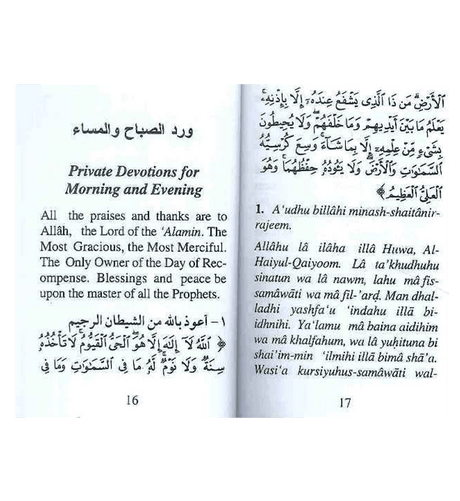 ورد الصباح والمساء
Private Devotions for
Morning and Evening
All the praises and thanks are to
Allâh, the Lord of the 'Alamin. The
Most Gracious, the Most Merciful.
The Only Owner of the Day of Rec-
ompense. Blessings and peace be
upon the master of all the Prophets.
١- أعوذ بالله من الشيطان الرجيم
﴿ ٱللَّهُ لَآ إِلَٰهَ إِلَّا هُوَ ٱلْحَىُّ ٱلْقَيُّومُ لَا تَأْخُذُهُۥ
سِنَةٌ وَلَا نَوْمٌ لَّهُۥ مَا فِى ٱلسَّمَٰوَٰتِ وَمَا فِى
16
ٱلْأَرْضِ مَن ذَا ٱلَّذِى يَشْفَعُ عِندَهُۥٓ إِلَّا بِإِذْنِهِۦ
يَعْلَمُ مَا بَيْنَ أَيْدِيهِمْ وَمَا خَلْفَهُمْ وَلَا يُحِيطُونَ
بِشَىْءٍ مِّنْ عِلْمِهِۦٓ إِلَّا بِمَا شَآءَ وَسِعَ كُرْسِيُّهُ
ٱلسَّمَٰوَٰتِ وَٱلْأَرْضَ وَلَا يَـُٔودُهُۥ حِفْظُهُمَا وَهُوَ
ٱلْعَلِىُّ ٱلْعَظِيمُ ﴾
1. A'udhu billâhi minash-shaitânir-
rajeem.
Allâhu lâ ilâha illâ Huwa, Al-
Haiyul-Qaiyoom. Lâ ta'khudhuhu
sinatun wa lâ nawm, lahu mâ fis-
samâwâti wa mâ fil-'arḍ. Man dhal-
ladhi yashfa'u 'indahu illâ bi-
idhnihi. Ya'lamu mâ baina aidihim
wa mâ khalfahum, wa lâ yuḥituna bi
shai'im-min 'ilmihi illâ bimâ shâ'a.
Wasi'a kursiyuhus-samâwâti wal-
17